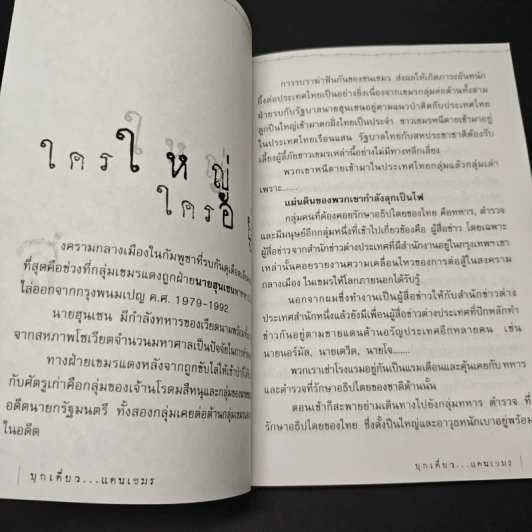 ใครใหญ่
ใครอ
งครามกลางเมืองในกัมพูชาที่รบกันดุเดือดเลือดพล
ที่สุดคือช่วงที่กลุ่มเขมรแดงถูกฝ่ายนายฮุนเซน
ไล่ออกจากกรุงพนมเปญ ค.ศ. 1979-1992
นายฮุนเซน มีกำลังทหารของเวียดนามพร้อม
จากสหภาพโซเวียตจำนวนมหาศาลเป็นปัจจัยในการ
ทางฝ่ายเขมรแดงหลังจากถูกขับไล่ให้เข้าป่าก็
กับศัตรูเก่าคือกลุ่มของเจ้านโรดมสีหนุและกลุ่มของนาย
อดีตนายกรัฐมนตรี ทั้งสองกลุ่มเคยต่อต้านกลุ่มเขมรแดง
ในอดีต
บุกเดี่ยว...แดนเขมร
การรบราฆ่าฟันกันของชนเขมร ส่งผลให้เกิดภาระอันหนัก
อึ้งต่อประเทศไทยเป็นอย่างยิ่งเนื่องจากเขมรกลุ่มต่อต้านทั้งสาม
ฝ่ายรบกับรัฐบาลนายฮุนเซนอยู่ตามแนวป่าติดกับประเทศไทย
ลูกปืนใหญ่เข้ามาตกฝั่งไทยเป็นประจำ ชาวเขมรหนีตายเข้ามาอยู่
ในประเทศไทยเรือนแสน รัฐบาลไทยกับสหประชาชาติต้องรับ
เลี้ยงผู้ลี้ภัยชาวเขมรเหล่านี้อย่างไม่มีทางหลีกเลี่ยง
พวกเขาหนีตายเข้ามาในประเทศไทยกลุ่มแล้วกลุ่มเล่า
เพราะ.......
แผ่นดินของพวกเขากำลังลุกเป็นไฟ
กลุ่มคนที่ต้องคอยรักษาอธิปไตยของไทย คือทหาร, ตำรวจ
และมีมนุษย์อีกกลุ่มหนึ่งที่เข้าไปเกี่ยวข้องคือ ผู้สื่อข่าว โดยเฉพาะ
ผู้สื่อข่าวจากสำนักข่าวต่างประเทศที่มีสำนักงานอยู่ในกรุงเทพฯ เขา
เหล่านั้นคอยรายงานความเคลื่อนไหวของการต่อสู้ในสงคราม
กลางเมือง ในเขมรให้โลกภายนอกได้รับรู้
นอกจากผมซึ่งทำงานเป็นผู้สื่อข่าวให้กับสำนักข่าวต่าง
ประเทศสำนักหนึ่งแล้วยังมีเพื่อนผู้สื่อข่าวต่างประเทศที่ปักหลักทำ
ข่าวกันอยู่ตามชายแดนด้านอรัญประเทศอีกหลายคน เช่น
นายนอร์มัส, นายเดวิด, นายโจ.......
พวกเราเช่าโรงแรมอยู่กันเป็นแรมเดือนและคุ้นเคยกับ ทหาร
และตำรวจที่รักษาอธิปไตยของชาติด้านนั้น
ตอนเช้าก็สะพายย่ามเดินทางไปยังกลุ่มทหาร ตำรวจ ที่
รักษาอธิปไตยของไทย ซึ่งตั้งปืนใหญ่และอาวุธหนักเบาอยู่พร้อม
บุกเดี่ยว...แดนเขมร